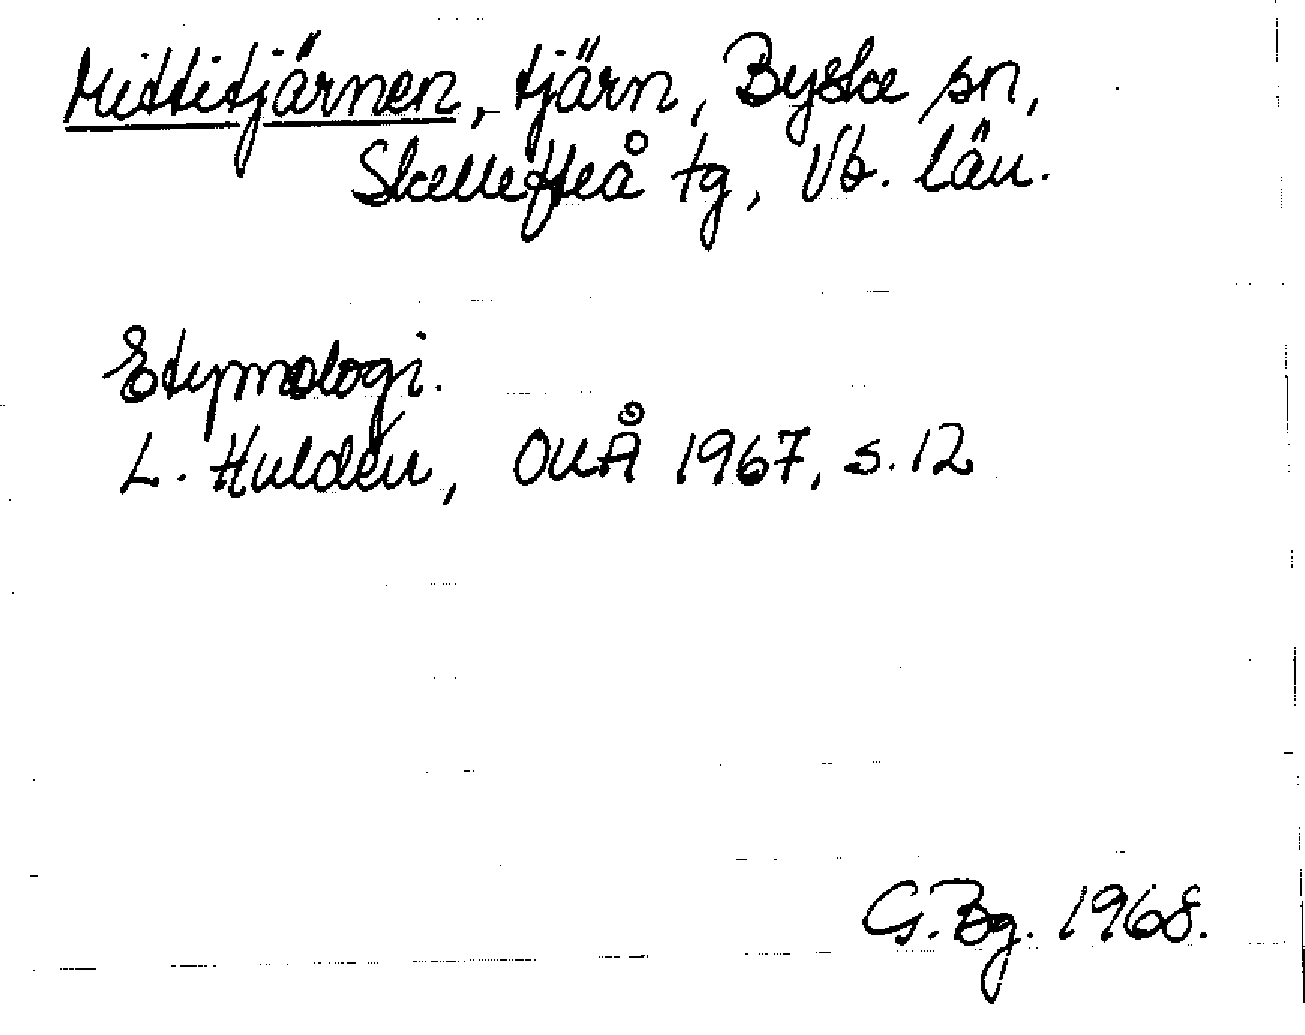 Mittitjärnen, tjärn, Byske sn,
Skellefteå tg, Vb. län.
Etymologi.
L. Huldén, OUÅ 1967, s. 12
G. Bg. 1968.